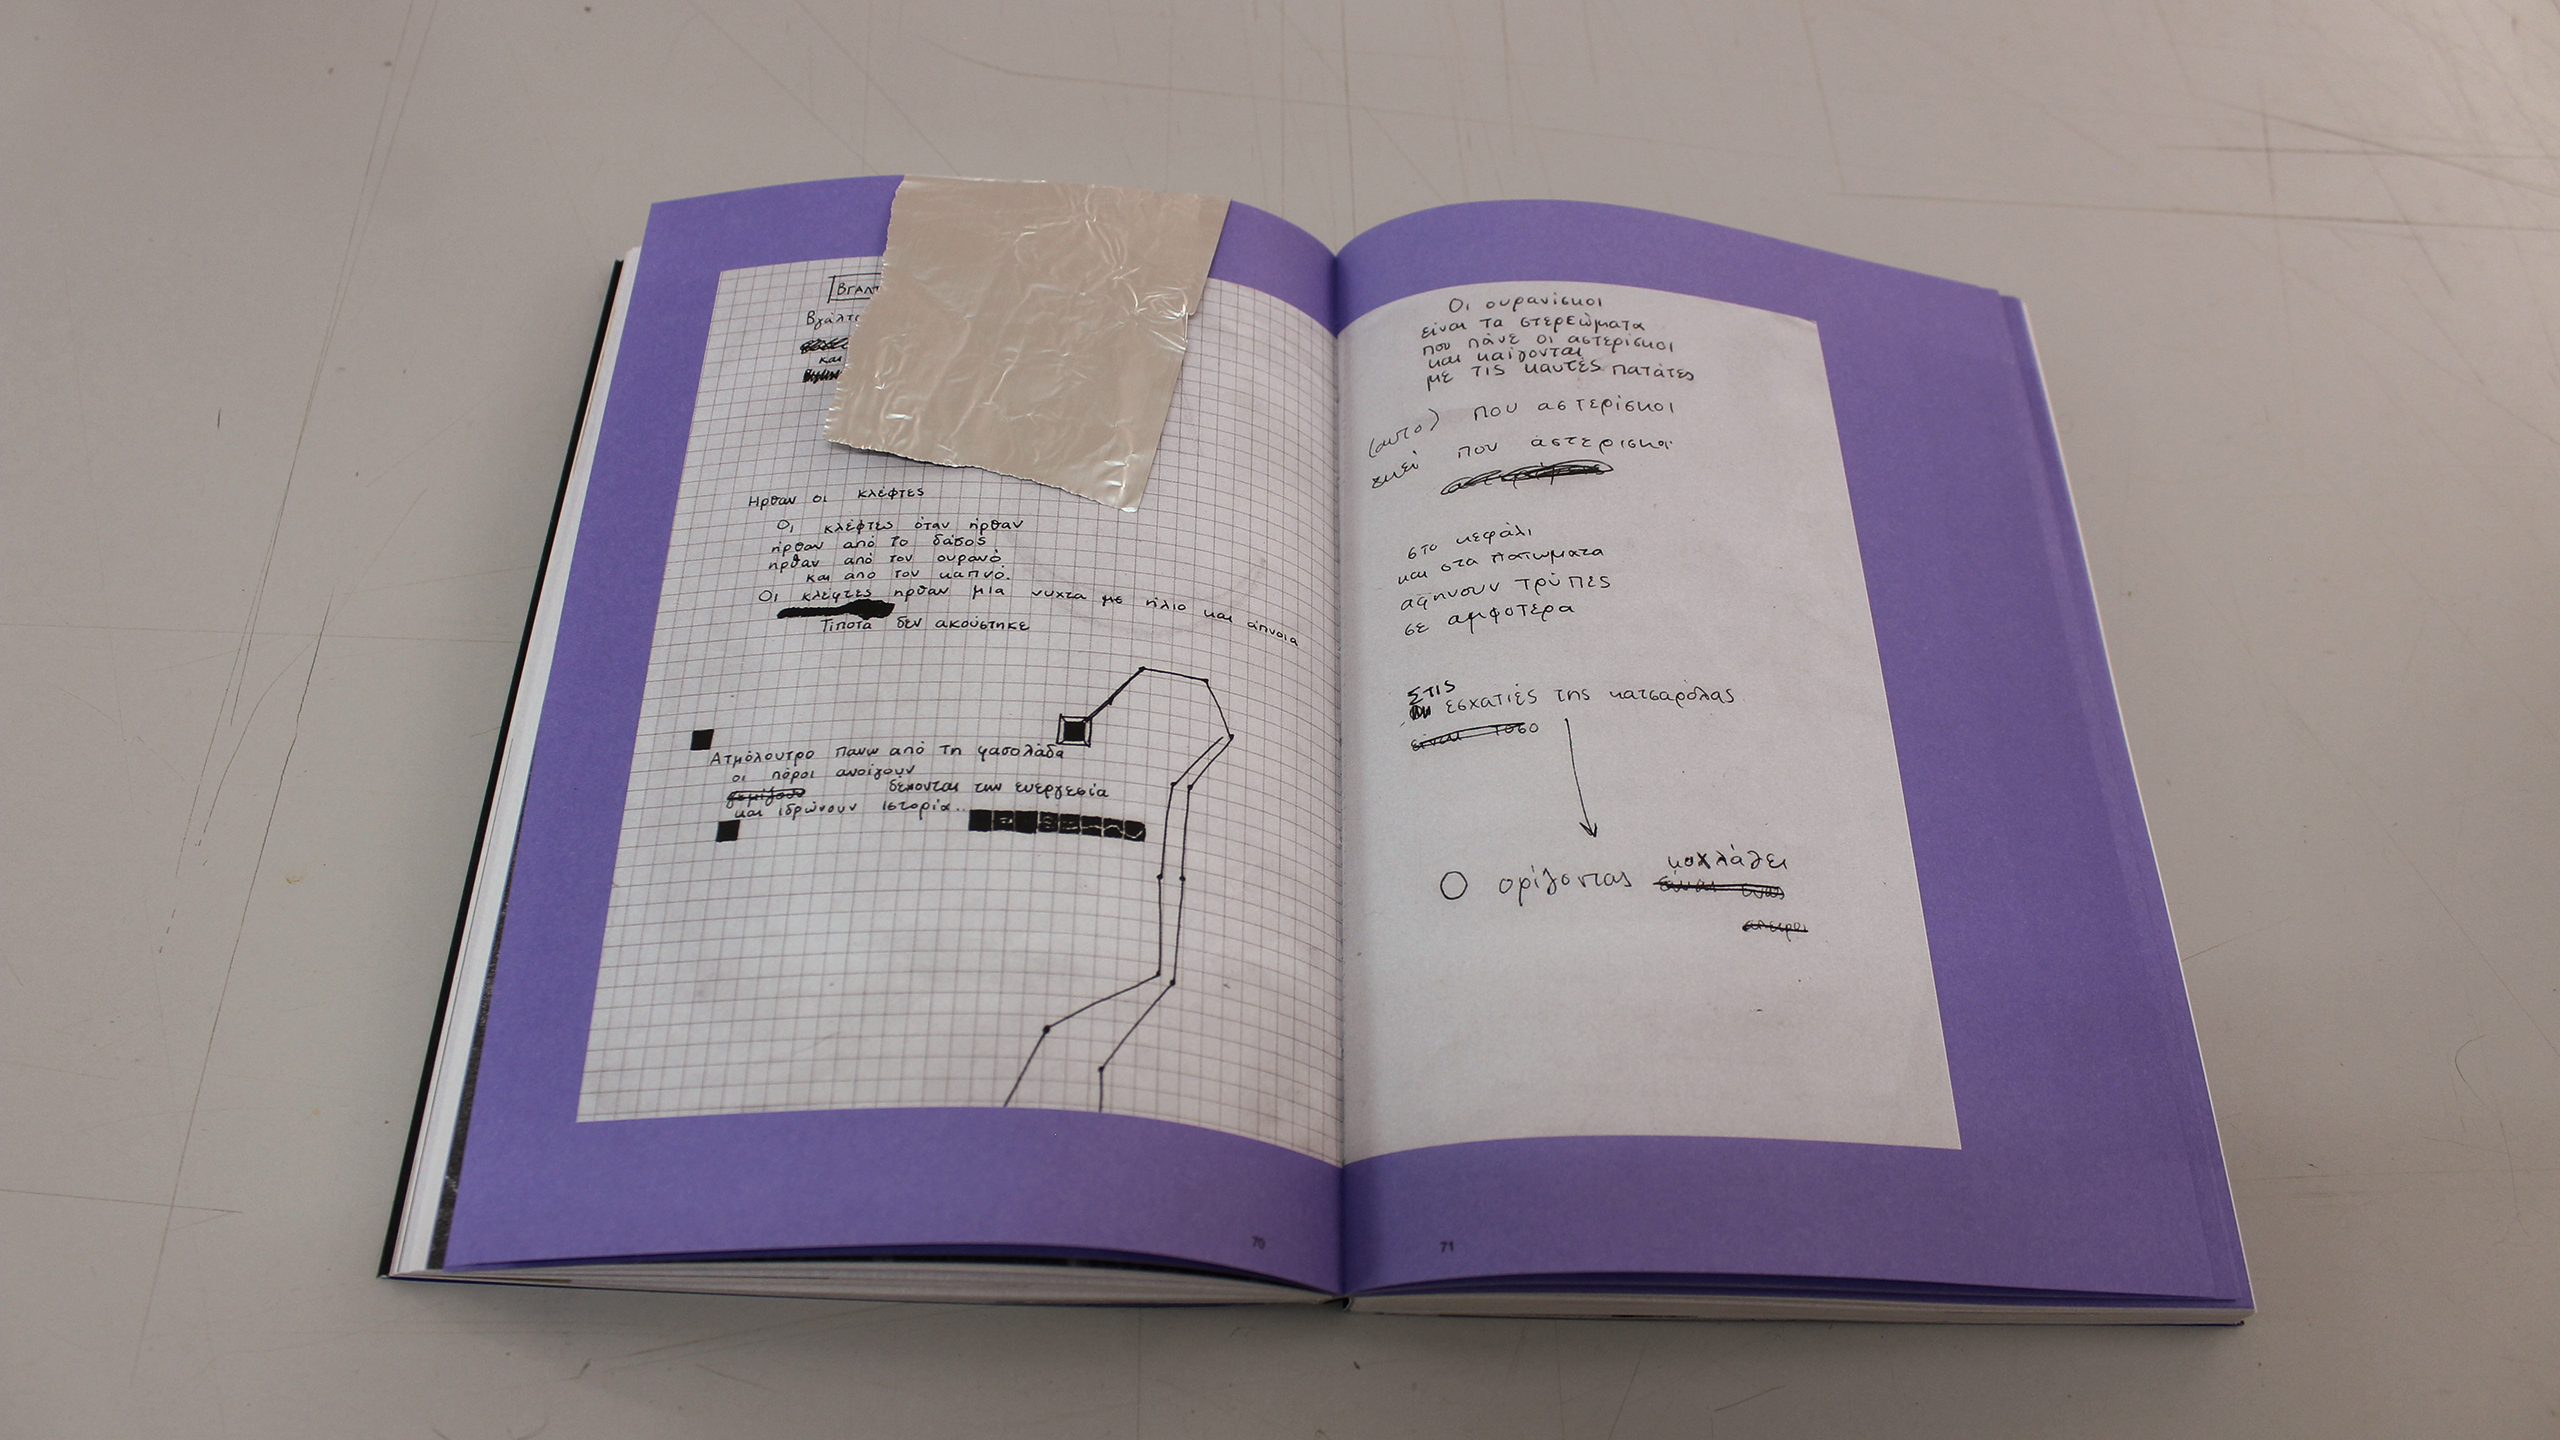 ΒΓΑΛΤ
Βγάλτε
και
Ηρθαν οι κλέφτες
Οι κλέφτες όταν ήρθαν
ήρθαν από το δάσος
ήρθαν από τον ουρανό
και από τον καπνό.
Οι κλέφτες ηρθαν μία νύχτα με ήλιο και άπνοια
Τίποτα δεν ακούστηκε
Ατμόλουτρο πανω από τη φασολάδα
οι πόροι ανοίγουν
γεμίζουν δέχονται την ευεργεσία
και ιδρώνουν ιστορία..
70
Οι ουρανίσκοι
είναι τα στερεώματα
που πάνε οι αστερίσκοι
και καίγονται
με τις καυτές πατάτες
(αυτο) που αστερίσκοι
εκεί που αστερισκοι
στο κεφάλι
και στα πατωματα
αφήνουν τρύπες
σε αμφοτερα
Στις
εσχατιές της κατσαρόλας
είναι τοσο
Ο ορίζοντας κοχλάζει
είναι ενας
απειροι
71